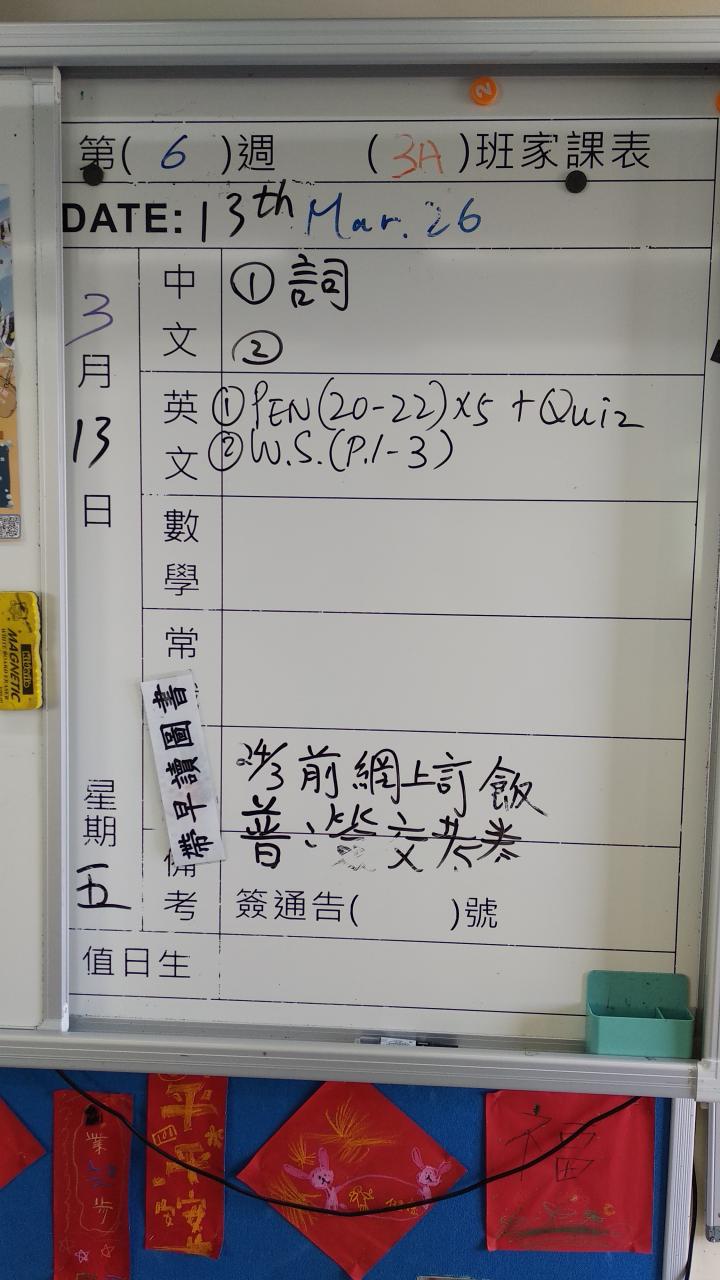 第( 6 )週 ( 3A )班家課表
DATE: 13th Mar. 26
3月13日
星期五
中文
① 詞
②
英文
① PEN(20-22)x5 + Quiz
② W.S.(P.1-3)
數學
常
帶早讀圖書
24/3前網上訂飯
普:簽交
備考
簽通告( )號
值日生
MAGNETIC
平平安安
福
業
步
2